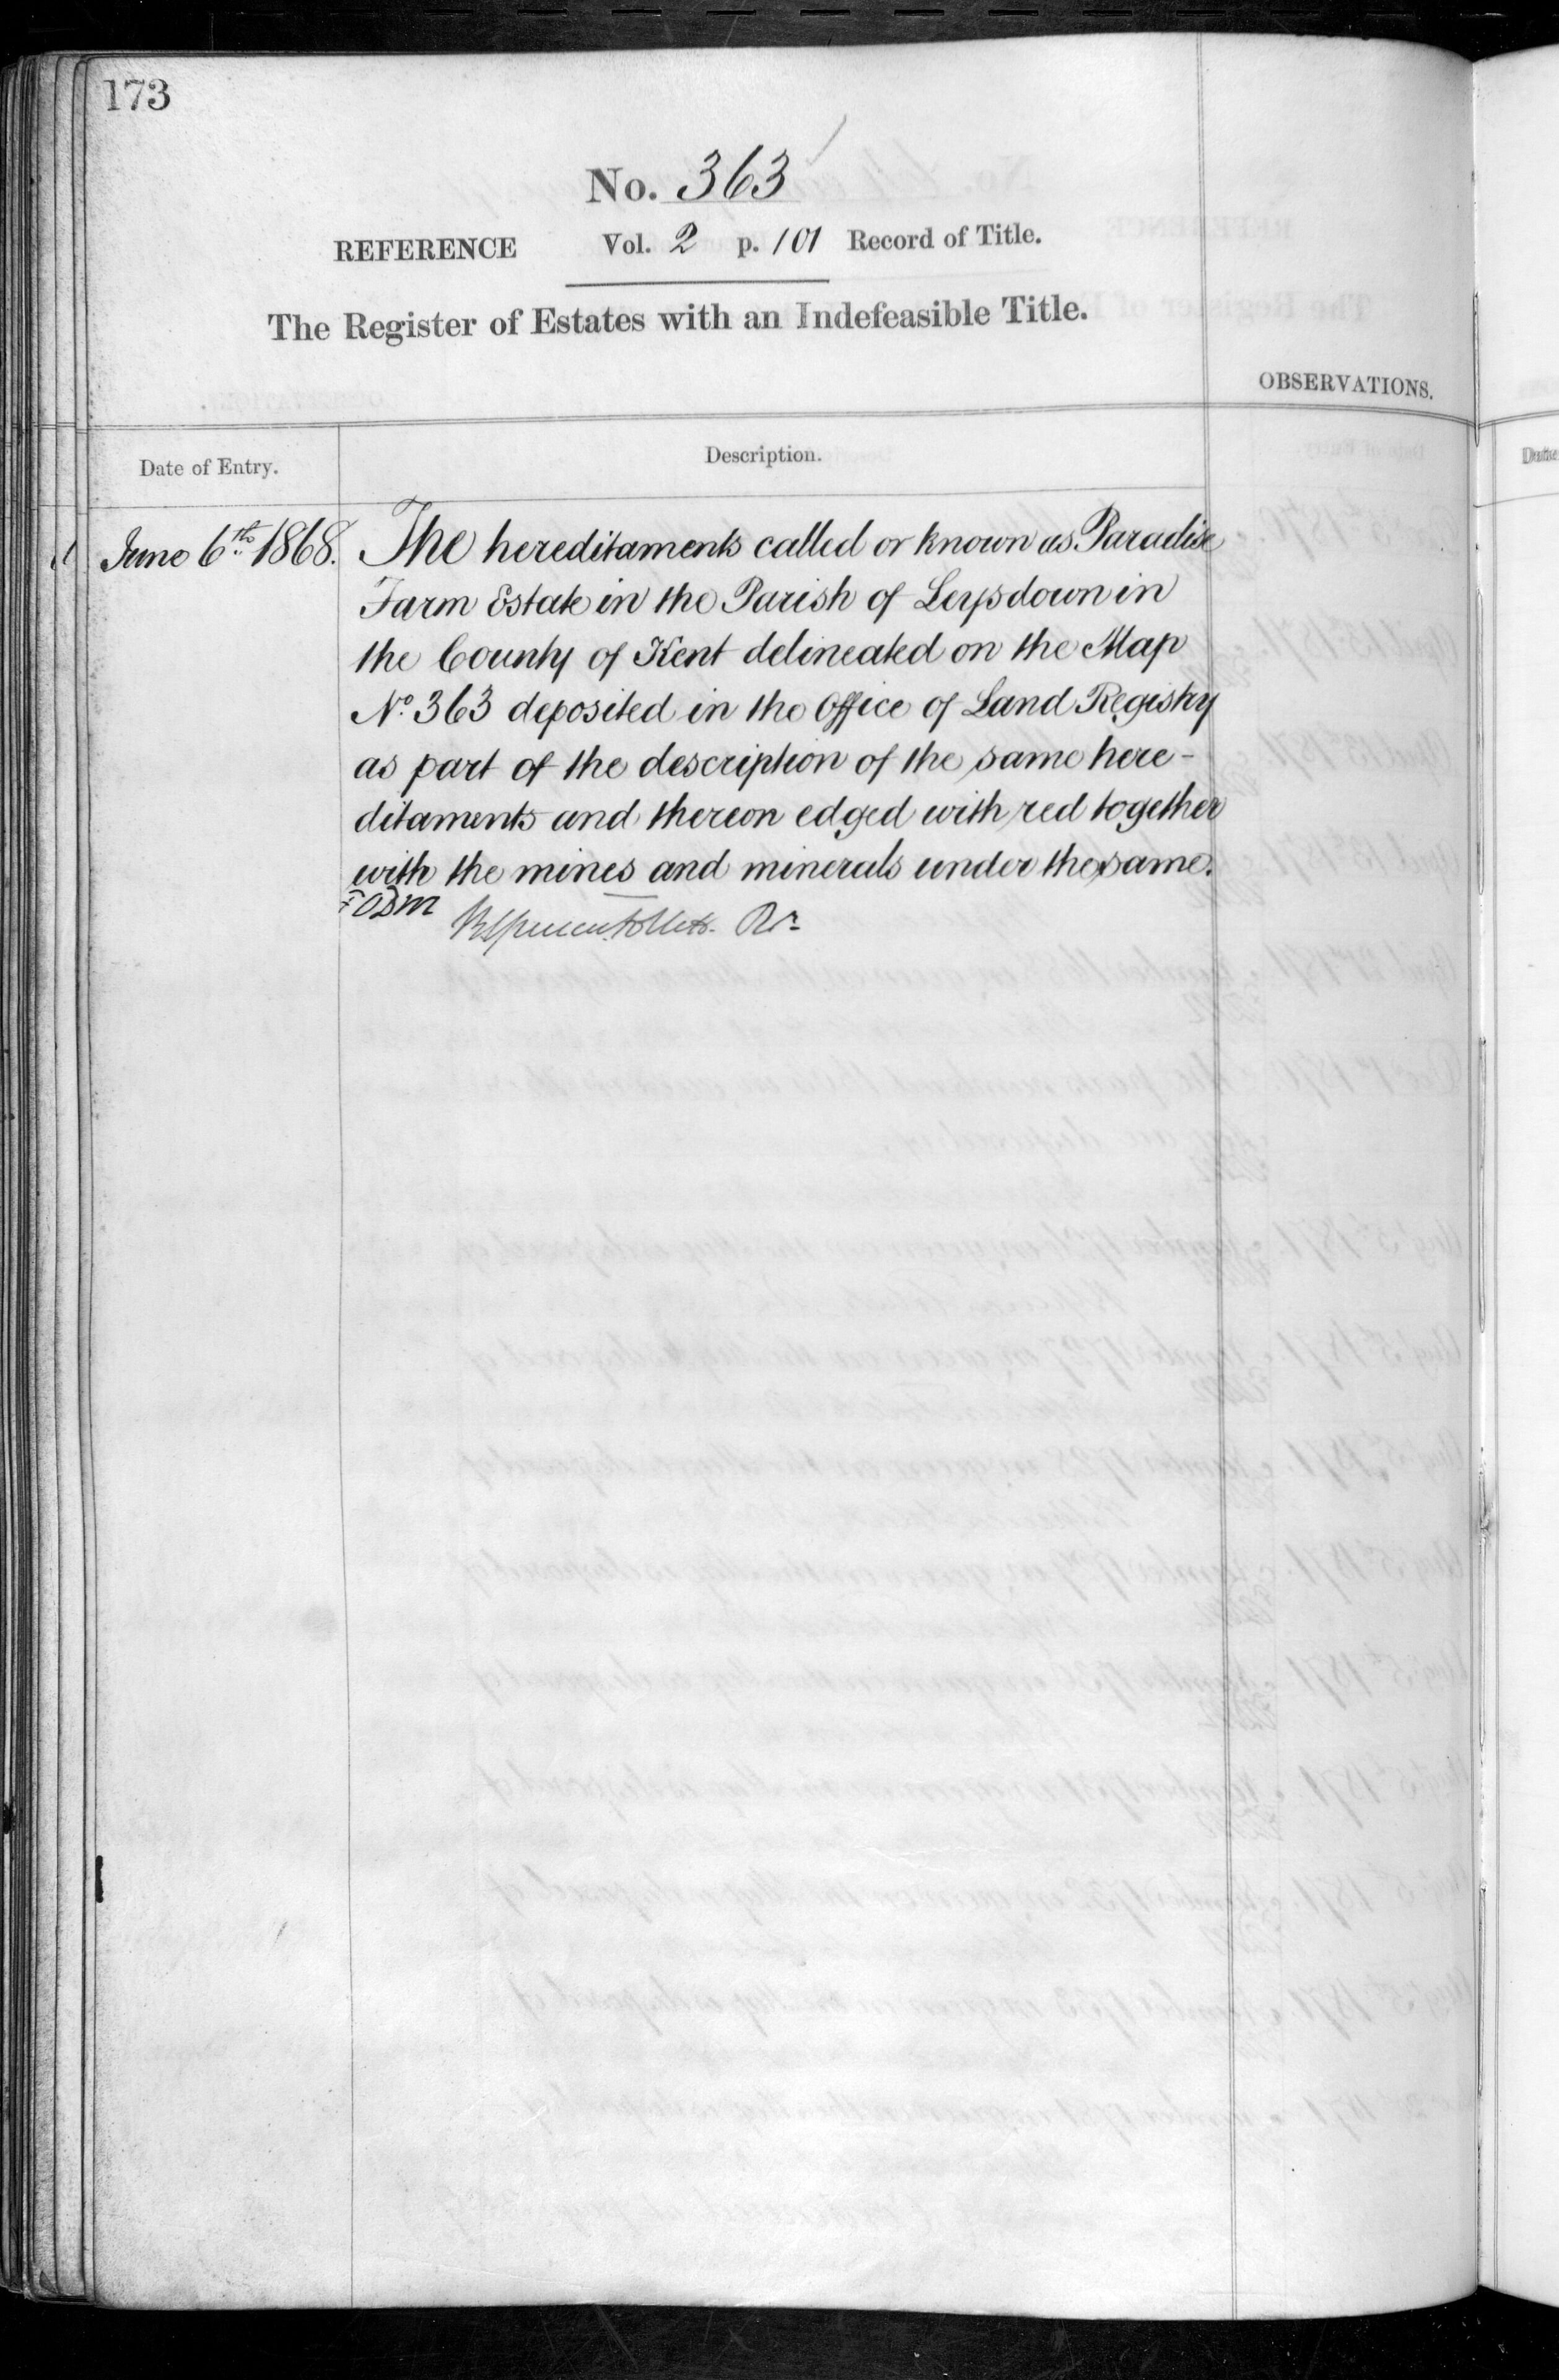 173
No. 363
REFERENCE Vol. 2 p. 101 Record of Title.
The Register of Estates with an Indefeasible Title.
OBSERVATIONS.
Date of Entry. Description.
June 6th 1868. The hereditaments called or known as Paradise
Farm Estate in the Parish of Leysdown in
the County of Kent delineated on the Map
No 363 deposited in the Office of Land Registry
as part of the description of the same here-
ditaments and thereon edged with red together
with the mines and minerals under the same.